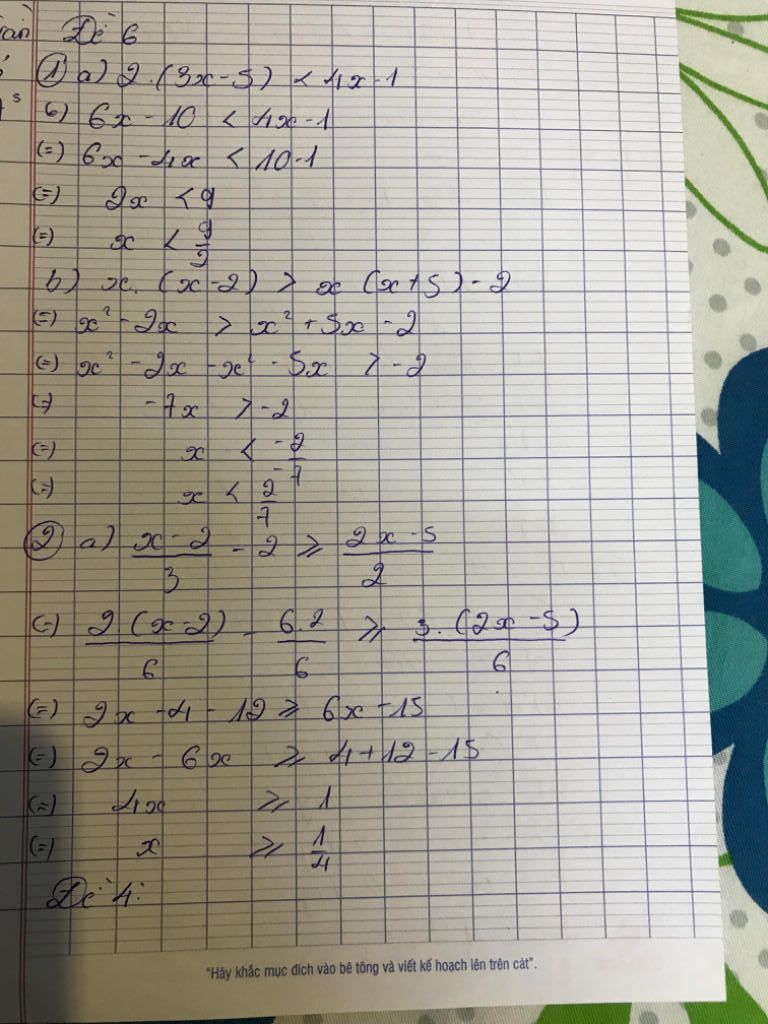 Đề 6
① a) 2.(3x-5) < 4x-1
(=) 6x - 10 < 4x-1
(=) 6x - 4x < 10-1
(=) 2x < 9
(=) x < 9/2
b) x.(x-2) > x(x+5)-2
(=) x² - 2x > x² + 5x - 2
(=) x² - 2x - x² - 5x > -2
(=) -7x > -2
(=) x < -2/-7
(=) x < 2/7
② a) (x-2)/3 - 2 ≥ (2x-5)/2
(=) 2(x-2)/6 - 6.2/6 ≥ 3.(2x-5)/6
(=) 2x - 4 - 12 ≥ 6x - 15
(=) 2x - 6x ≥ 4+12-15
(=) 4x ≥ 1
(=) x ≥ 1/4
Đề 4:
"Hãy khắc mục đích vào bê tông và viết kế hoạch lên trên cát".